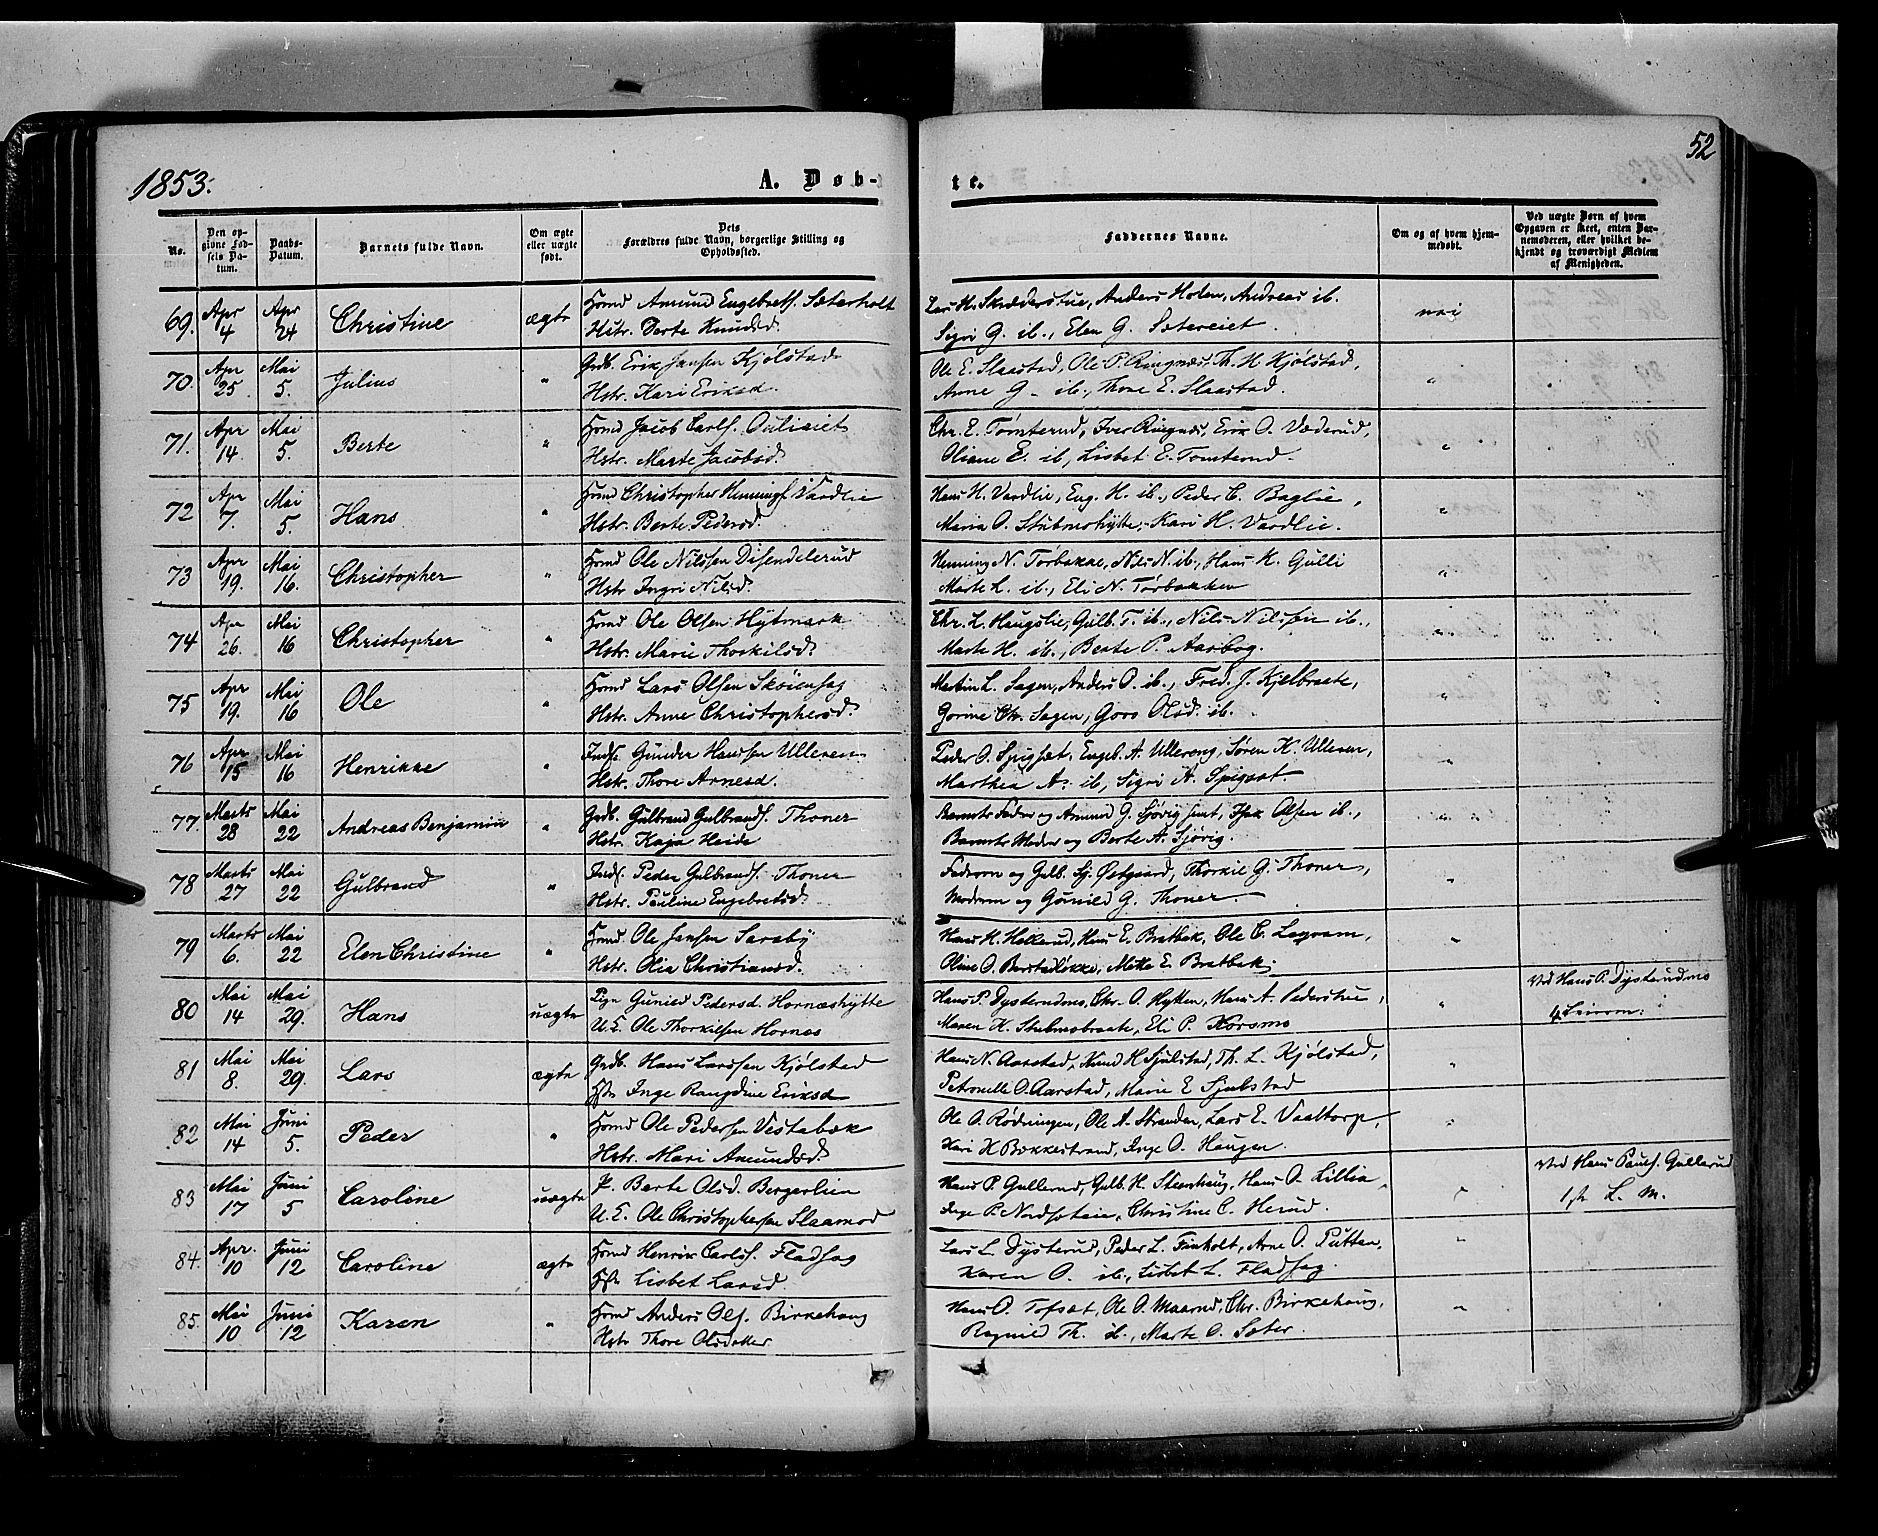 1853.
A. Døb-
te.
52
No.
Den op-
givne Fød-
sels Da-
tum.
Daabs-
Datum.
Barnets fulde Navn.
Om ægte
eller uægte
født.
Dets
Forældres fulde Navn, borgerlige Stilling og
Opholdssted.
Faddernes Navne.
Om og af hvem hjem-
medøbt.
Ved uægte Børn af hvem
Opgaven er skeet, enten Bar-
nemoderen, eller hvilket be-
kjendt og troværdigt Medlem
af Menigheden.
69. Apr 4 Apr 24 Christine ægte Hmd Amund Engebrets. Sæterholt
Hstr. Berte Knudsd.
Lars H. Skrædderstue, Anders Holen, Andreas ib.
Sigri G. ib., Elen G. Sætereiet. nei
70. Apr 25 Mai 5. Julius " Grdb. Erik Jansen Kjølstad
Hstr. Kari Eriksd.
Ole E. Slaastad, Ole P. Ringnæs, Th. H Kjølstad,
Anne G - ib., Thore E. Slaastad. "
71. Apr 14. Mai 5. Berte " Hmd Jacob Carls. Oulieiet
Hstr. Marte Jacobsd.
Chr. E. Tømterud, Iver Ringnæs, Erik O. Væderud,
Oliane E. ib, Lisbet E. Tomterud. "
72 Apr 7. Mai 5. Hans " Hmd Christopher Hennings Vardlie
Hstr. Berte Pedersd.
Hans H. Vardlie, Eng. H. ib., Peder C. Baglie,
Maria O. Stubmohytte, Kari H. Vardlie. "
73 Apr 19. Mai 16. Christopher " Hmd Ole Nilssen Disendelerud
Hstr Ingri Nilsd.
Henning N. Torbakke, Nils N. ib., Hans K. Gulli
Marte L. ib., Eli N. Tørbakken "
74 Apr 26. Mai 16 Christopher " Hmd Ole Olsen Hytmark
Hstr. Marie Thorkilsd.
Chr. L. Haugslie, Gulb. T. ib., Nils Nilssen ib.,
Marte H. ib., Berte P. Aasbog. "
75 Apr 19. Mai 16 Ole " Hmd Lars Olsen Skøienhag
Hstr. Anne Christophersd.
Martin L. Sagen, Anders O. ib., Fred. J. Kjelbraate,
Gorine Chr. Sagen, Goro Olsd. ib. "
76 Apr 15 Mai 16 Henrikke " Inds. Gunder Hansen Ulleren
Hstr. Thore Arnesd.
Peder O. Spigset, Engeb. A. Ullereng, Søren H. Ulleren,
Marthea A. ib, Sigri A. Spigset. "
77. Marts 28 Mai 22 Andreas Benjamin " Grdb. Gulbrand Gulbrands. Thoner
Hstr. Kaja Heide
Barnets Fader og Amund G. Sjørig samt, Isak Olsen ib.,
Barnets Moder og Berte A. Sjørig. "
78 Marts 27 Mai 22 Gulbrand " Inds. Peder Gulbrands. Thoner
Hstr. Pauline Engebretsd.
Faderen og Gulb. Sj. Østgaard, Thorkil G. Thoner,
Moderen og Gunild G. Thoner. "
79 Marts 6. Mai 22 Elen Christine " Hmd. Ole Jansen Saraby
Hstr. Olia Christiansd.
Hans H. Hollerud, Hans E. Bratbak, Ole C. Lagram,
Oline O. Børstadløkke, Mette E. Bratbak. "
80 Mai 14 Mai 29. Hans uægte Pign Gunild Pedersd. Hornæshytte
U. E. Ole Thorkilsen Hornæs
Hans P. Dysterudmo, Chr. O. Hytten, Hans A. Pederstue,
Maren K. Stubmobraate, Eli P. Korsmo "
Ved Hans P. Dysterudmo
81 Mai 8. Mai 29. Lars ægte Grdb. Hans Larssen Kjølstad
Hstr Inge Rangdine Eriksd
Hans N. Aarstad, Knud H Sjulstad, Th. L. Kjølstad,
Petronelle O. Aarstad, Marie E Sjulstad "
82 Mai 14 Juni 5. Peder " Hmd Ole Pedersen Vestabæk
Hstr. Mari Amundsd.
Ole O. Rødningen, Ole A. Stranden, Lars E. Vaaltorp,
Kari K Bækkestrand, Inge O. Haugen. "
83 Mai 17 Juni 5 Caroline uægte P. Berte Olsd. Bergerlien
U. E. Ole Christophersen Slaamod
Hans P. Gullerud, Gulb. H. Steenhaug, Hans O. Lillia,
Inge P. Nordsæteie, Christine C. Herud. "
Ved Hans Pauls. Gullerud
84. Apr. 10 Juni 12 Caroline ægte Hmd Henrik Carls. Fladhag
Hstr Lisbet Larsd.
Lars L. Dysterud, Peder L. Finholt, Arne O. Putten,
Karen O. ib., Lisbet L. Fladhag. "
85. Mai 10 Juni 12 Karen " Hmd Anders Ols. Birkehaug
Hstr Thore Olsdatter
Hans O. Tofsæt, Ole O. Maarud, Chr. Birkehaug,
Ragnild Th. ib., Marte O. Sæter. "